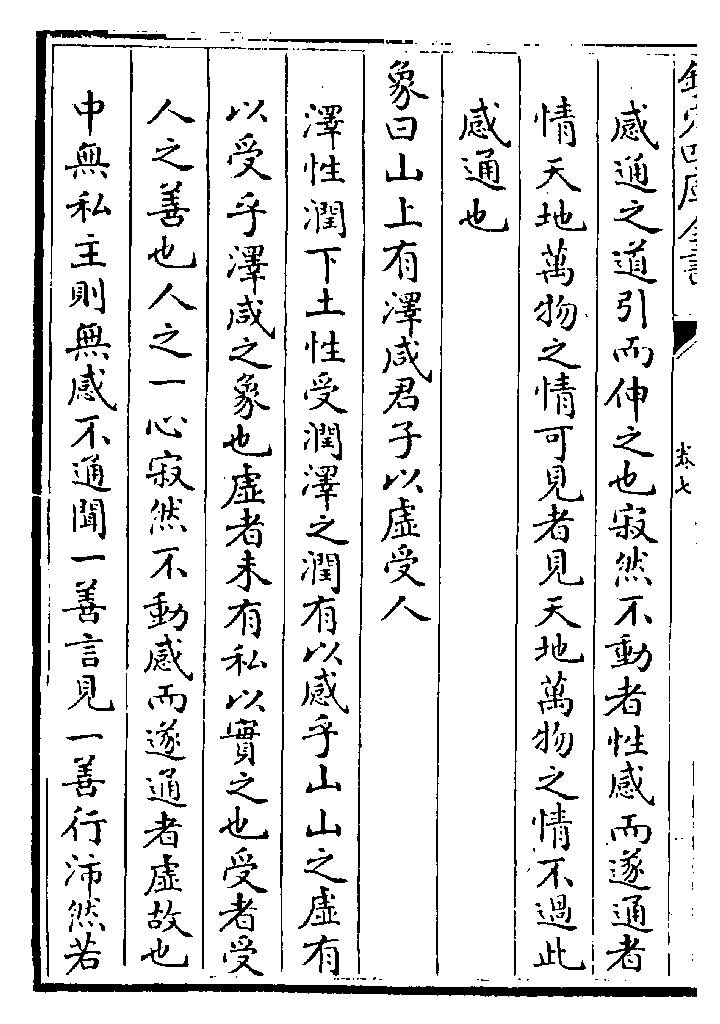 欽定四庫全書
卷七
感通之道引而伸之也寂然不動者性感而遂通者
情天地萬物之情可見者見天地萬物之情不過此
感通也
象曰山上有澤咸君子以虛受人
澤性潤下土性受潤澤之潤有以感乎山山之虛有
以受乎澤咸之象也虛者未有私以實之也受者受
人之善也人之一心寂然不動感而遂通者虛故也
中無私主則無感不通聞一善言見一善行沛然若